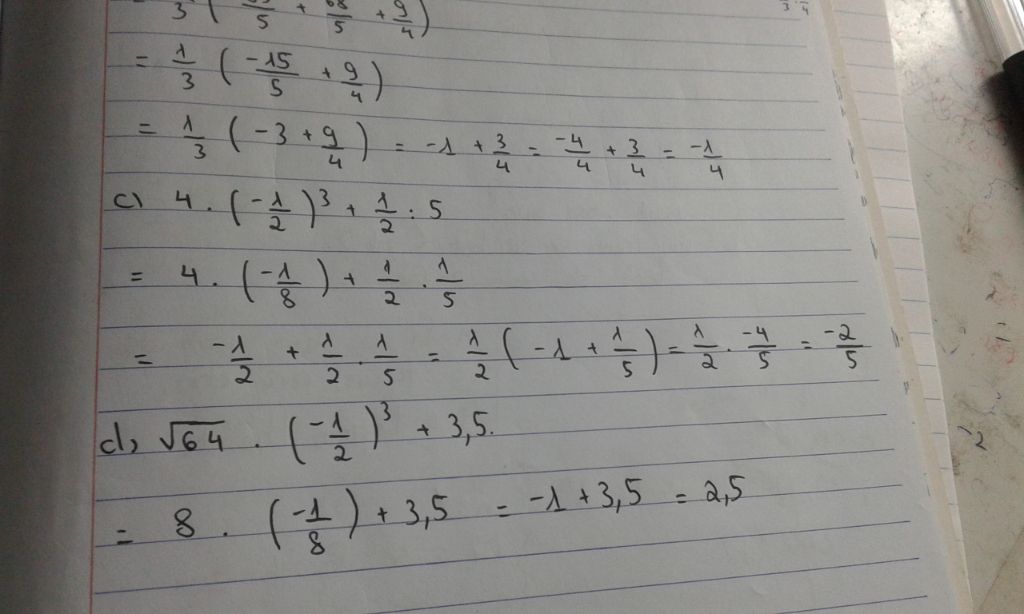 = 1/3 ( /5 + 68/5 + 9/4 )
= 1/3 ( -15/5 + 9/4 )
= 1/3 ( -3 + 9/4 ) = -1 + 3/4 = -4/4 + 3/4 = -1/4
c) 4 . ( -1/2 )³ + 1/2 : 5
= 4 . ( -1/8 ) + 1/2 . 1/5
= -1/2 + 1/2 . 1/5 = 1/2 ( -1 + 1/5 ) = 1/2 . -4/5 = -2/5
d) √64 . ( -1/2 )³ + 3,5.
= 8 . ( -1/8 ) + 3,5 = -1 + 3,5 = 2,5